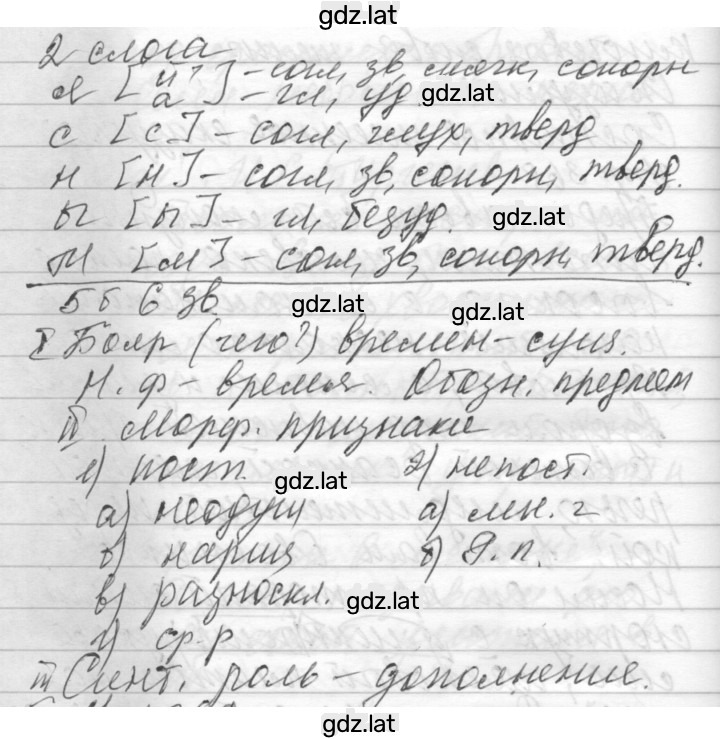 gdz.lat
2 слога
я [й'] – согл, зв, мягк, сонорн
[а] – гл, уд gdz.lat
с [с] – согл, глух, тверд
н [н] – согл, зв, сонорн, тверд.
ы [ы] – гл, безуд. gdz.lat
м [м] – согл, зв, сонорн, тверд.
5 б 6 зв gdz.lat gdz.lat
I Бояр (чего?) времён – сущ.
Н. ф – время. Обозн. предмет
II Морф. признаки
1) пост. gdz.lat 2) непост.
а) неодуш а) мн. г
б) нариц б) Р. п.
в) разноскл. gdz.lat
г) ср. р
III Синт. роль – дополнение.
gdz.lat